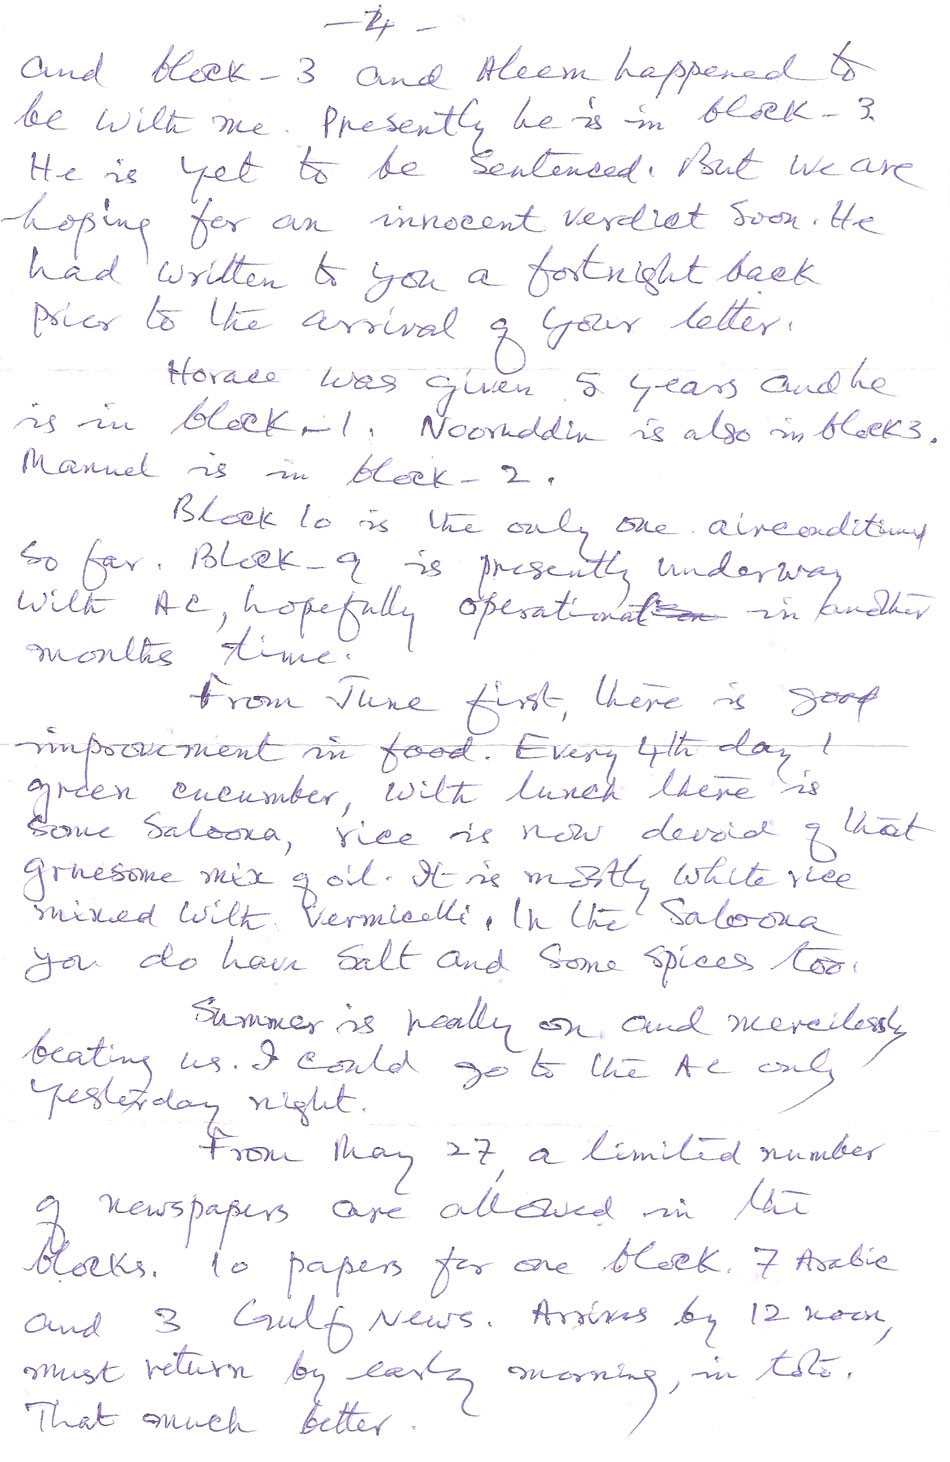 and block-3 and Aleem happened to
be with me. Presently he is in block-3.
He is yet to be sentenced. But we are
hoping for an innocent verdict soon. He
had written to you a fortnight back
prior to the arrival of your letter.
Horace was given 5 years and he
is in block-1. Nooruddin is also in block 3.
Manuel is in block-2.
Block 10 is the only one airconditioned
so far. Block-9 is presently underway
with AC, hopefully operational in another
months time.
From June first, there is good
improvement in food. Every 4th day 1
green cucumber, with lunch there is
some Saloona, rice is now devoid of that
gruesome mix of oil. It is mostly white rice
mixed with vermicelli. In the Saloona
you do have salt and some spices too.
Summer is really on and mercilessly
beating us. I could go to the AC only
yesterday night.
From May 27, a limited number
of newspapers are allowed in the
blocks. 10 papers for one block. 7 Arabic
and 3 Gulf News. Arrives by 12 noon,
must return by early morning, in toto.
That much better.